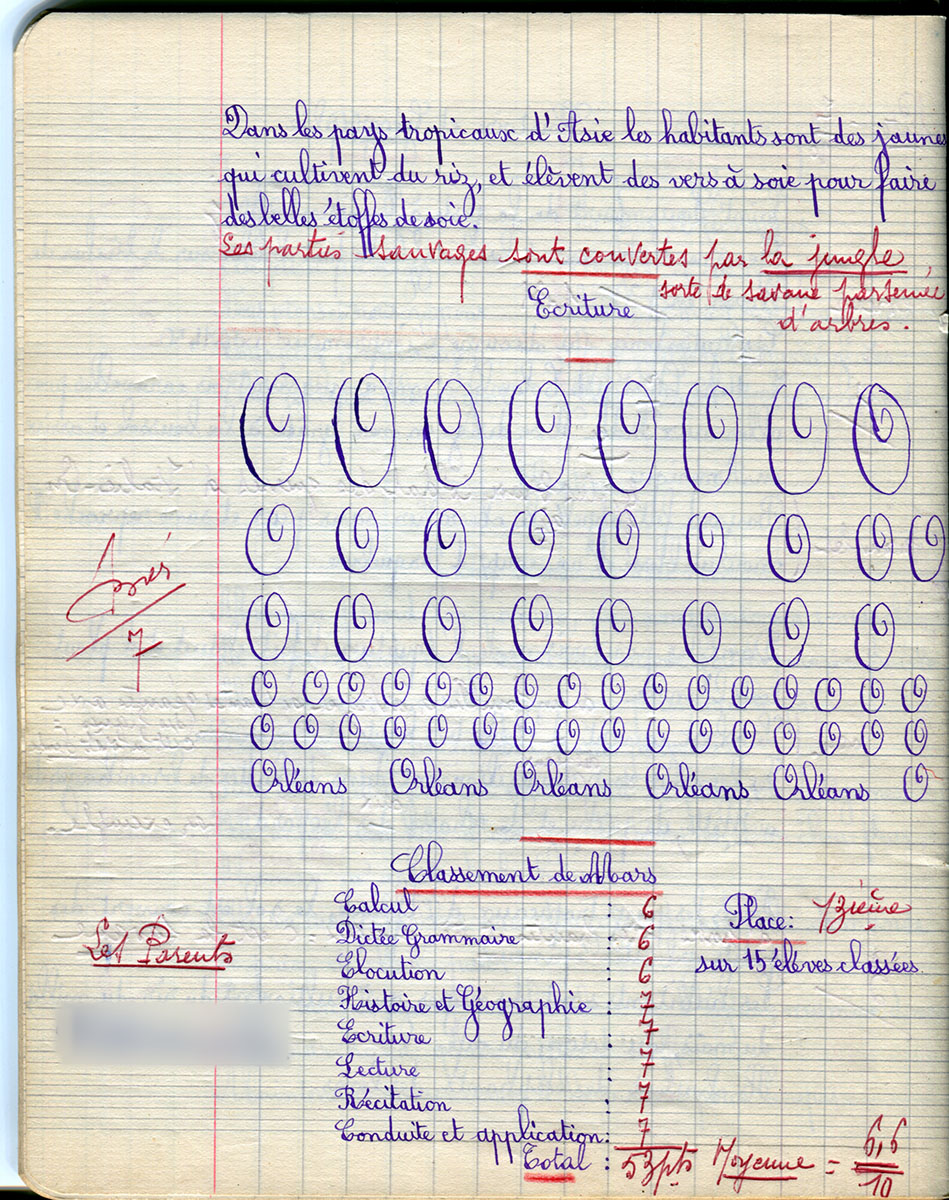 Dans les pays tropicaux d'Asie les habitants sont des jaunes
qui cultivent du riz, et élèvent des vers à soie pour faire
des belles étoffes de soie.
Les parties sauvages sont couvertes par la jungle,
sorte de savane parsemée
d'arbres.
Ecriture
O O O O O O O O
O O O O O O O O O
O O O O O O O O
7
O O O O O O O O O O O O O O O O
O O O O O O O O O O O O O O O O
Orléans Orléans Orléans Orléans Orléans O
Classement de Mars
Calcul : 6
Place: 13ième
Dictée Grammaire : 6
Les Parents
Elocution : 6
sur 15 élèves classées.
Histoire et Géographie : 7
Ecriture : 7
Lecture : 7
Récitation : 7
Conduite et application: 7
Total : 53pts Moyenne = 6,6/10